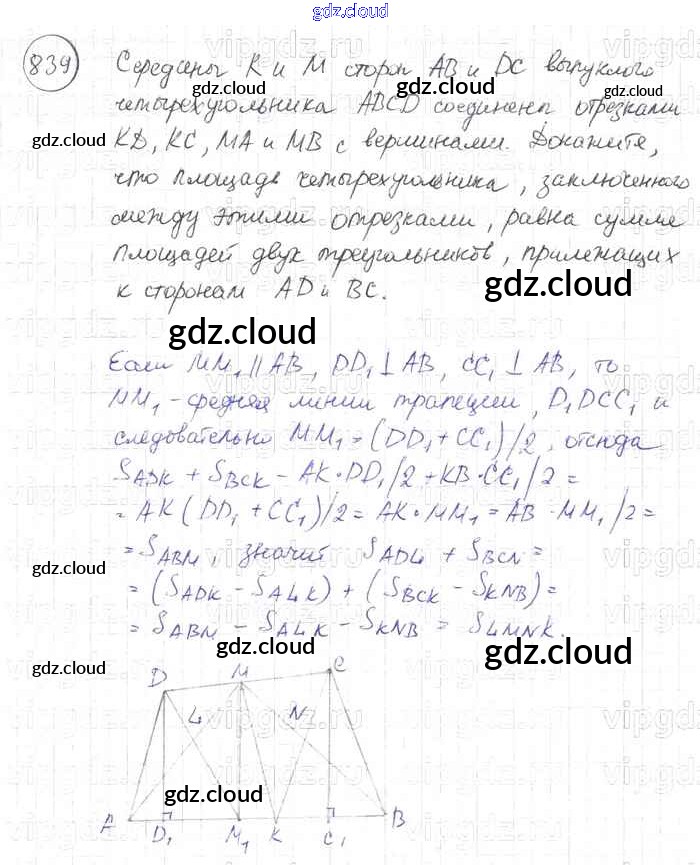 gdz.cloud
839
Середины K и M сторон AB и DC выпуклого
четырехугольника ABCD соединены отрезками
KD, KC, MA и MB с вершинами. Докажите,
что площадь четырехугольника, заключенного
между этими отрезками, равна сумме
площадей двух треугольников, прилежащих
к сторонам AD и BC.
gdz.cloud
Если MM₁ || AB, DD₁ ⊥ AB, CC₁ ⊥ AB, то
MM₁ - средняя линии трапеции, D₁DCC₁ и
следовательно MM₁ = (DD₁ + CC₁)/2, отсюда
S_ADK + S_BCK = AK · DD₁/2 + KB · CC₁/2 =
= AK (DD₁ + CC₁)/2 = AK · MM₁ = AB · MM₁/2 =
= S_ABM, значит S_ADL + S_BCN =
= (S_ADK - S_ALK) + (S_BCK - S_KNB) =
= S_ABM - S_ALK - S_KNB = S_LMNK.
gdz.cloud
D M C
L N
A D₁ M₁ K C₁ B